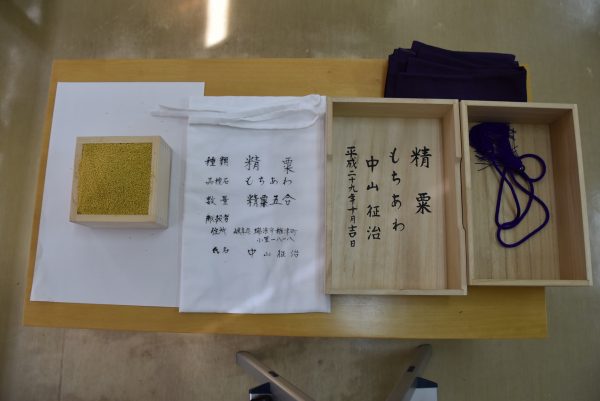 種類 精粟
品種名 もちあわ
数量 精粟五合
献穀者
住所 岐阜県 瑞浪市稲津町
小里一八一八
氏名 中山征治
精粟
もちあわ
中山征治
平成二十九年十月吉日